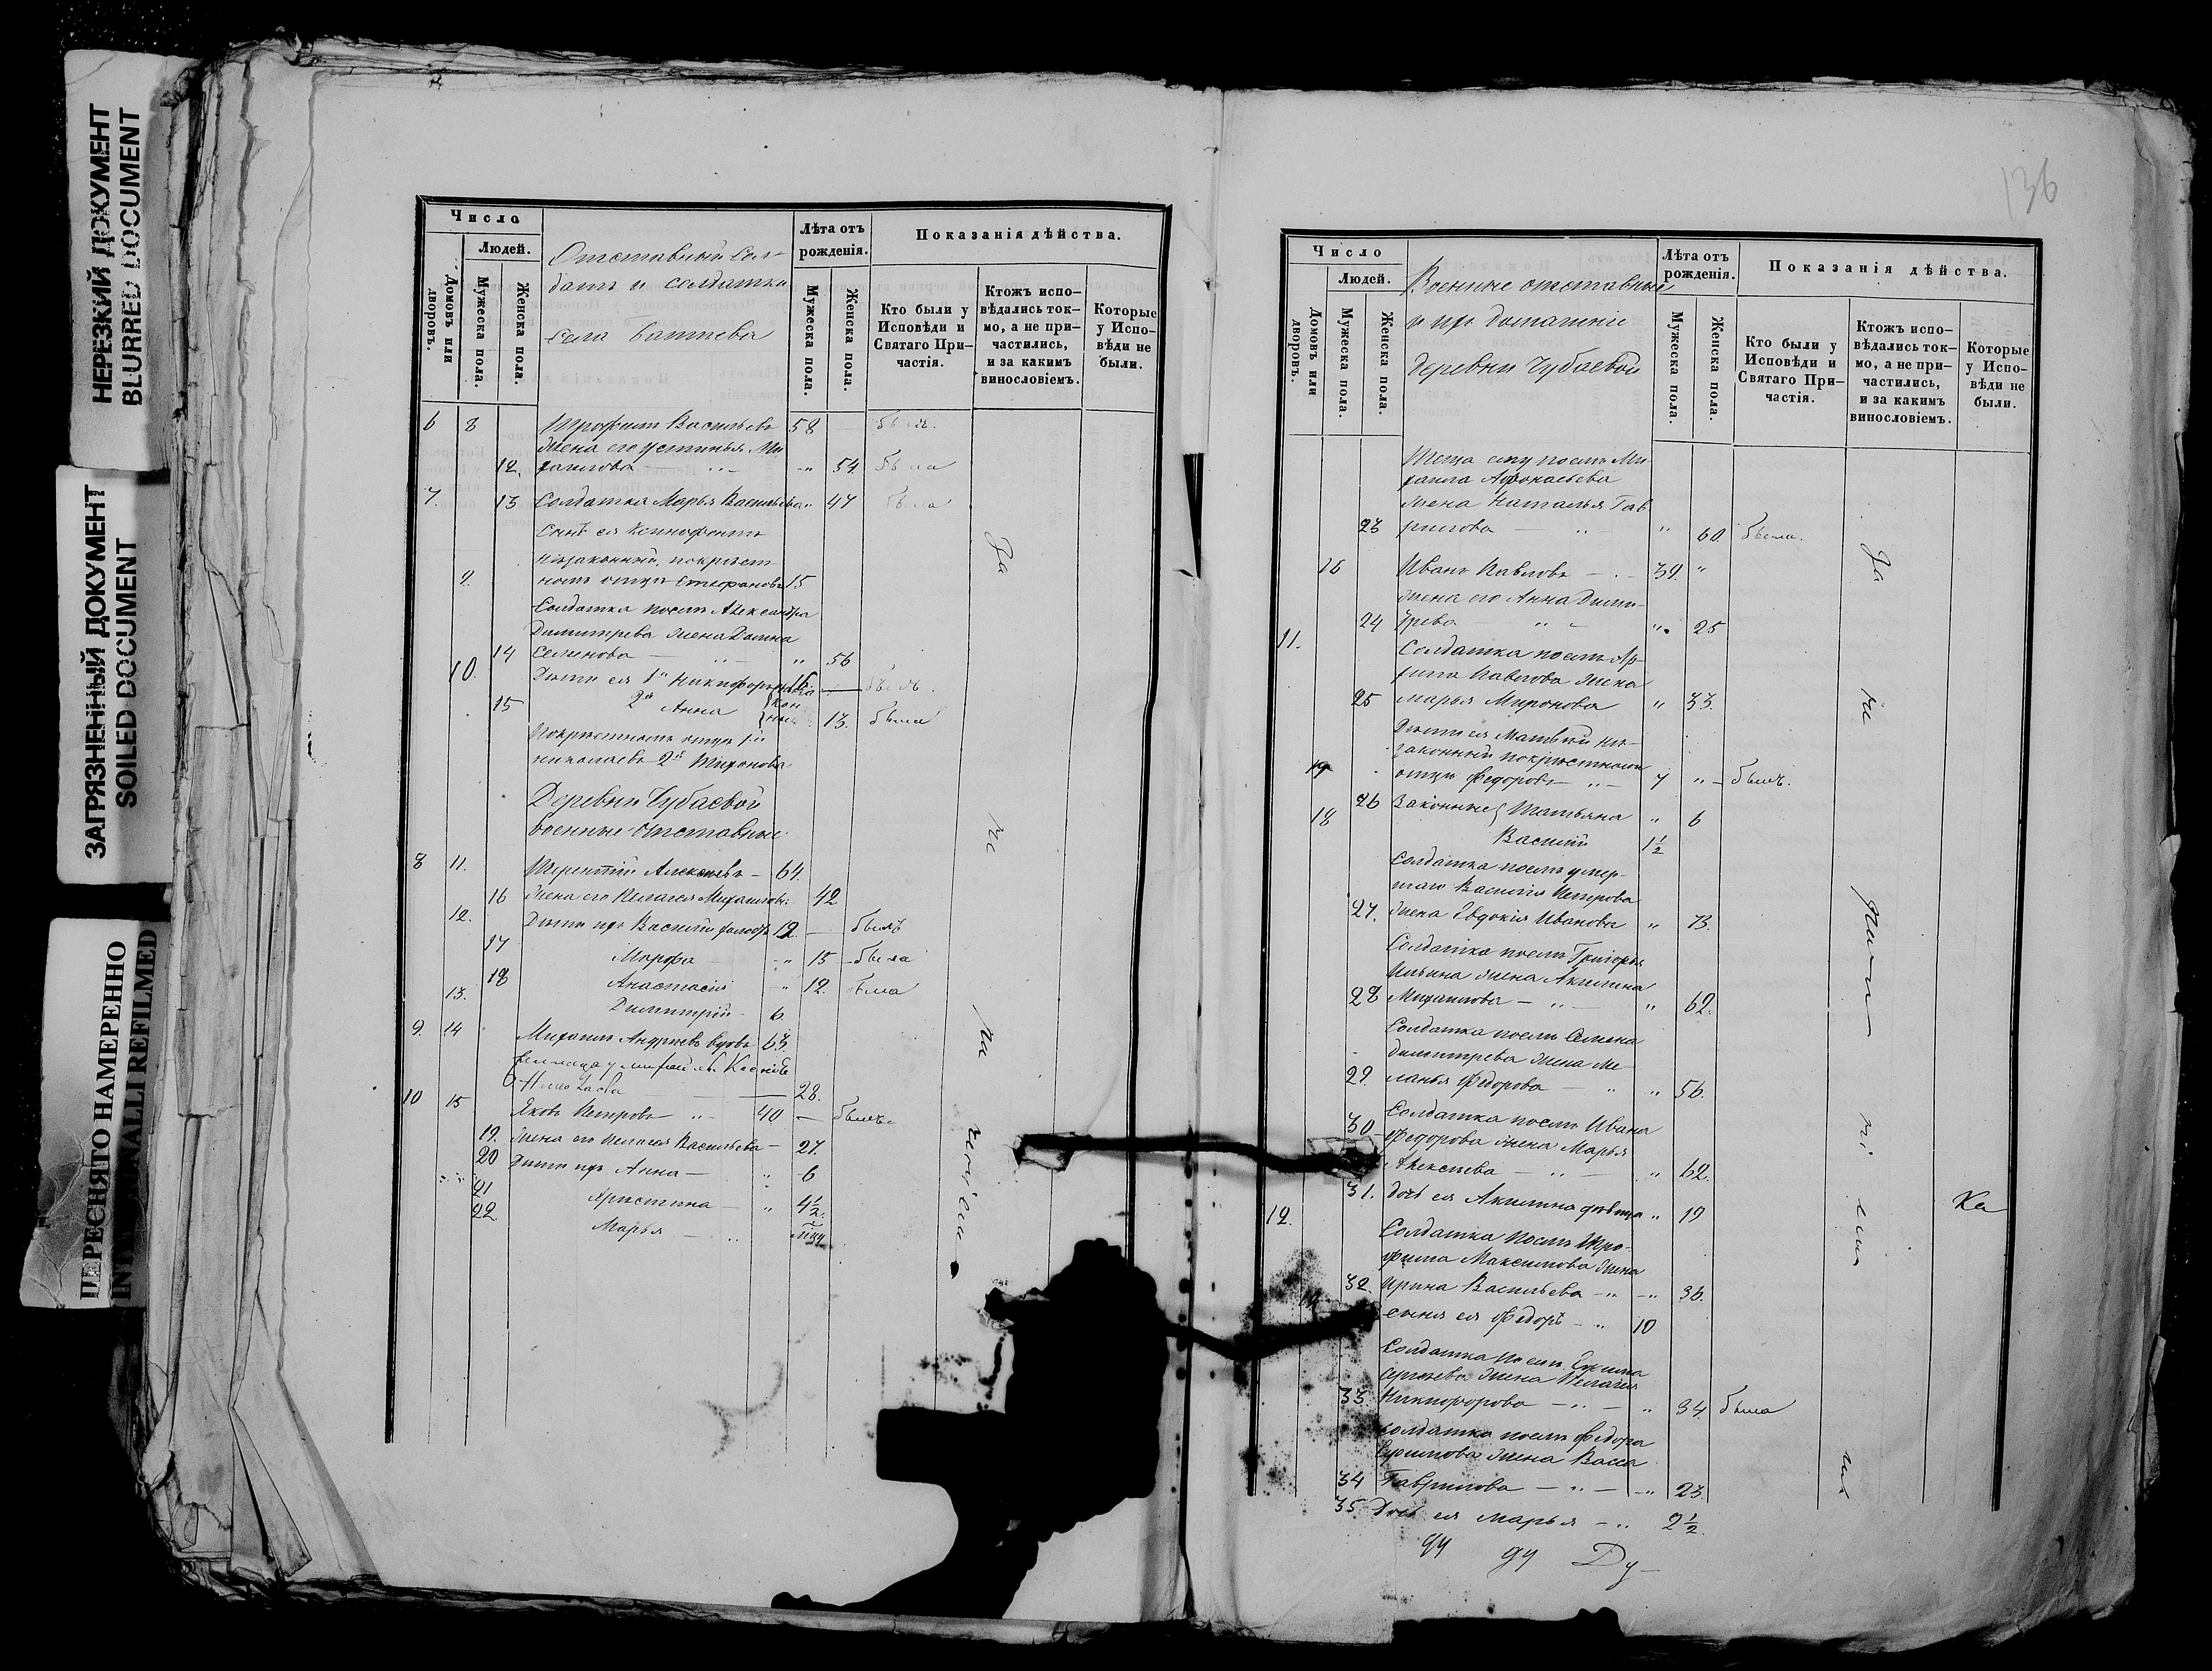 НЕРЕЗКИЙ ДОКУМЕНТ
BLURRED DOCUMENT
ЗАГРЯЗНЕННЫЙ ДОКУМЕНТ
SOILED DOCUMENT
ПЕРЕСНЯТО НАМЕРЕННО
INTENTIONALLY REFILMED
Число
Людей.
Домовъ или дворовъ.
Мужеска пола.
Женска пола.
Отставный Сол-
датъ и солдатки
села
Лѣта отъ рожденія.
Мужеска пола.
Женска пола.
Показанія дѣйства.
Кто были у Исповѣди и Святаго При-частія.
Ктожъ испо-вѣдались ток-мо, а не при-частились, и за какимъ винословіемъ.
Которые у Испо-вѣди не были.
6 8 Трофимъ Васильевъ 58 былъ.
жена его Устинья Ми
12. хаилова „ 54 была
7. 13 Солдатка Марья Васильева „ 47 была
Сынъ ея Ксенофонтъ
незаконный, по крест
9. номъ отцѣ Стефановъ 15
Солдатка послѣ Александра
Димитрева жена Домна
14 Семенова „ 56
10. Дѣти ея 1й Никифоръ 16 былъ.
15 2я Анна 13. была
По крестномъ отцѣ 1й
Николаевъ 2я Тихонова
Деревни Чубаевой
военные отставные
8 11. Терентій Алексѣевъ 64.
16 Жена его Пелагея Михаилов: 42
12. Дѣти ихъ Василій 12. былъ
17 Марфа „ 15 была
18 Анастасія „ 12. была
13. Димитрій 6
9. 14 Михаилъ Андреевъ вдовъ 63.
28.
10 15 Яковъ Петровъ „ 40 былъ
19. Жена его Пелагея Васильева 27.
20 Дѣти ихъ Анна „ 6
21 Христина „ 4½
22 Марья „
За
не
ни
136
Число
Людей.
Домовъ или дворовъ.
Мужеска пола.
Женска пола.
Военные отставные
и ихъ домашніе
деревни Чубаевой
Лѣта отъ рожденія.
Мужеска пола.
Женска пола.
Показанія дѣйства.
Кто были у Исповѣди и Святаго При-частія.
Ктожъ испо-вѣдались ток-мо, а не при-частились, и за какимъ винословіемъ.
Которые у Испо-вѣди не были.
Теща ему послѣ Ми
хаила Афонасьева
жена Наталья Гав
23 рилова „ 60. была.
16 Иванъ Павловъ 39. „
жена его Анна Дими-
24 трева „ 25
11. Солдатка послѣ Ар-
хипа Павлова жена
25 Марья Миронова „ 33.
Дѣти ея Матвѣй не-
законный по крестномъ
17 отцѣ Федоровъ 7 „ былъ.
26 Законные Татьяна „ 6
18 Василій 1½
Солдатка послѣ умер-
шаго Василія Петрова
27. жена Евдокія Иванова „ 73.
Солдатка послѣ Григорья
Ильина жена Акилина
28 Михаилова „ 62.
Солдатка послѣ Семена
Димитрева жена Ме-
29. ланья Федорова „ 56.
Солдатка послѣ Ивана
30 Федорова жена Марья
Алексѣева „ 62.
31. дочь ея Акилина дѣвица „ 19
12. Солдатка послѣ Тро-
фима Максимова жена
32. Ирина Васильева „ 36.
сынъ ея Федоръ 10
Солдатка послѣ Ефима
Сергѣева жена Пелагея
33. Никифорова „ 34. была
Солдатка послѣ Федора
жена Васса
34 Гаврилова „ 23.
35 Дочь ея Марья „ 2½
За
не